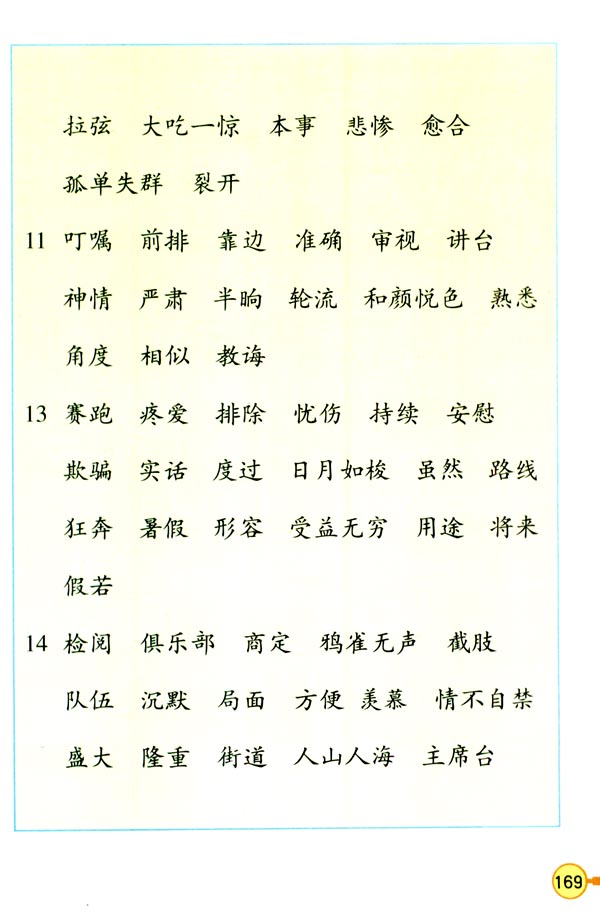 拉弦 大吃一惊 本事 悲惨 愈合
孤单失群 裂开
11 叮嘱 前排 靠边 准确 审视 讲台
神情 严肃 半晌 轮流 和颜悦色 熟悉
角度 相似 教诲
13 赛跑 疼爱 排除 忧伤 持续 安慰
欺骗 实话 度过 日月如梭 虽然 路线
狂奔 暑假 形容 受益无穷 用途 将来
假若
14 检阅 俱乐部 商定 鸦雀无声 截肢
队伍 沉默 局面 方便 羡慕 情不自禁
盛大 隆重 街道 人山人海 主席台
169